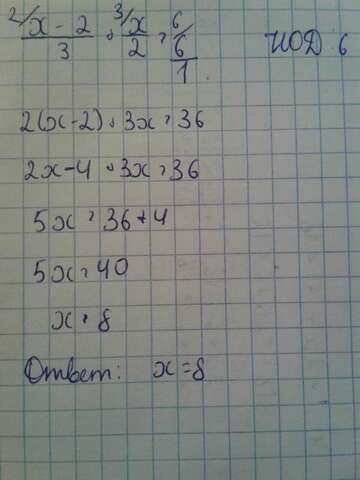 2/ x - 2 / 3 + 3/ x / 2 = 6/ 6 / 1 НОД 6
2(x-2) + 3x = 36
2x-4 + 3x = 36
5x = 36 + 4
5x = 40
x = 8
Ответ: x = 8